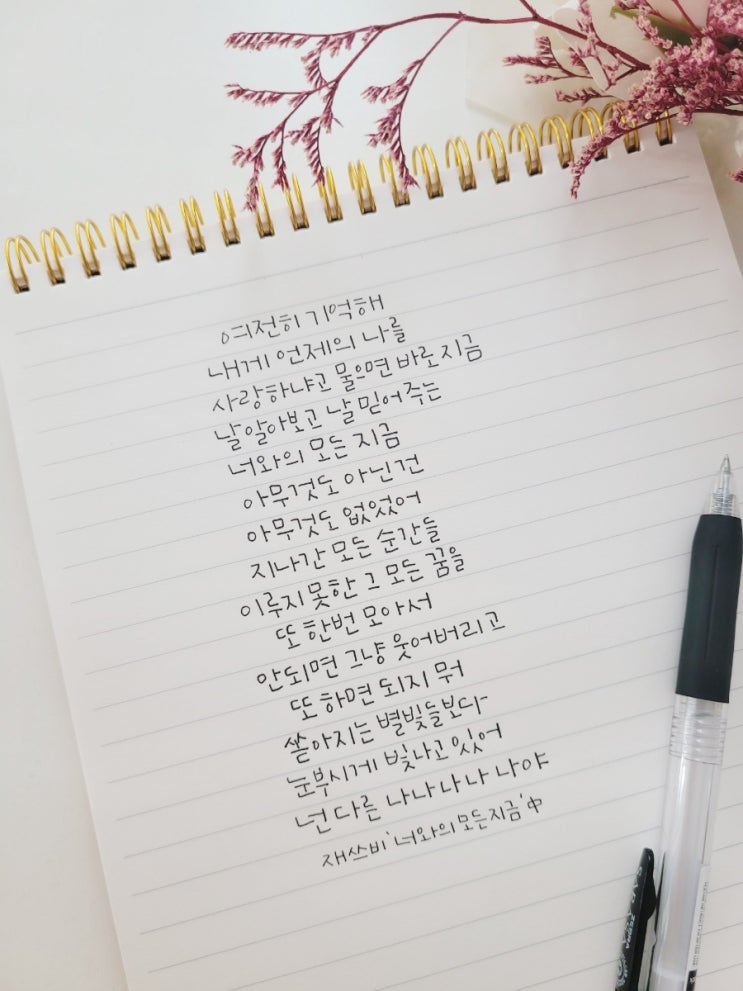 여전히 기억해
내게 언제의 나를
사랑하냐고 물으면 바로 지금
날 알아보고 날 믿어 주는
너와의 모든 지금
아무것도 아닌 건
아무것도 없었어
지나간 모든 순간들
이루지 못한 그 모든 꿈을
또 한번 모아서
안되면 그냥 웃어버리고
또 하면 되지 뭐
쏟아지는 별빛들보다
눈부시게 빛나고 있어
넌 다른 나나나나 나야
재쓰비 '너와의 모든 지금' 中
ZEBRA